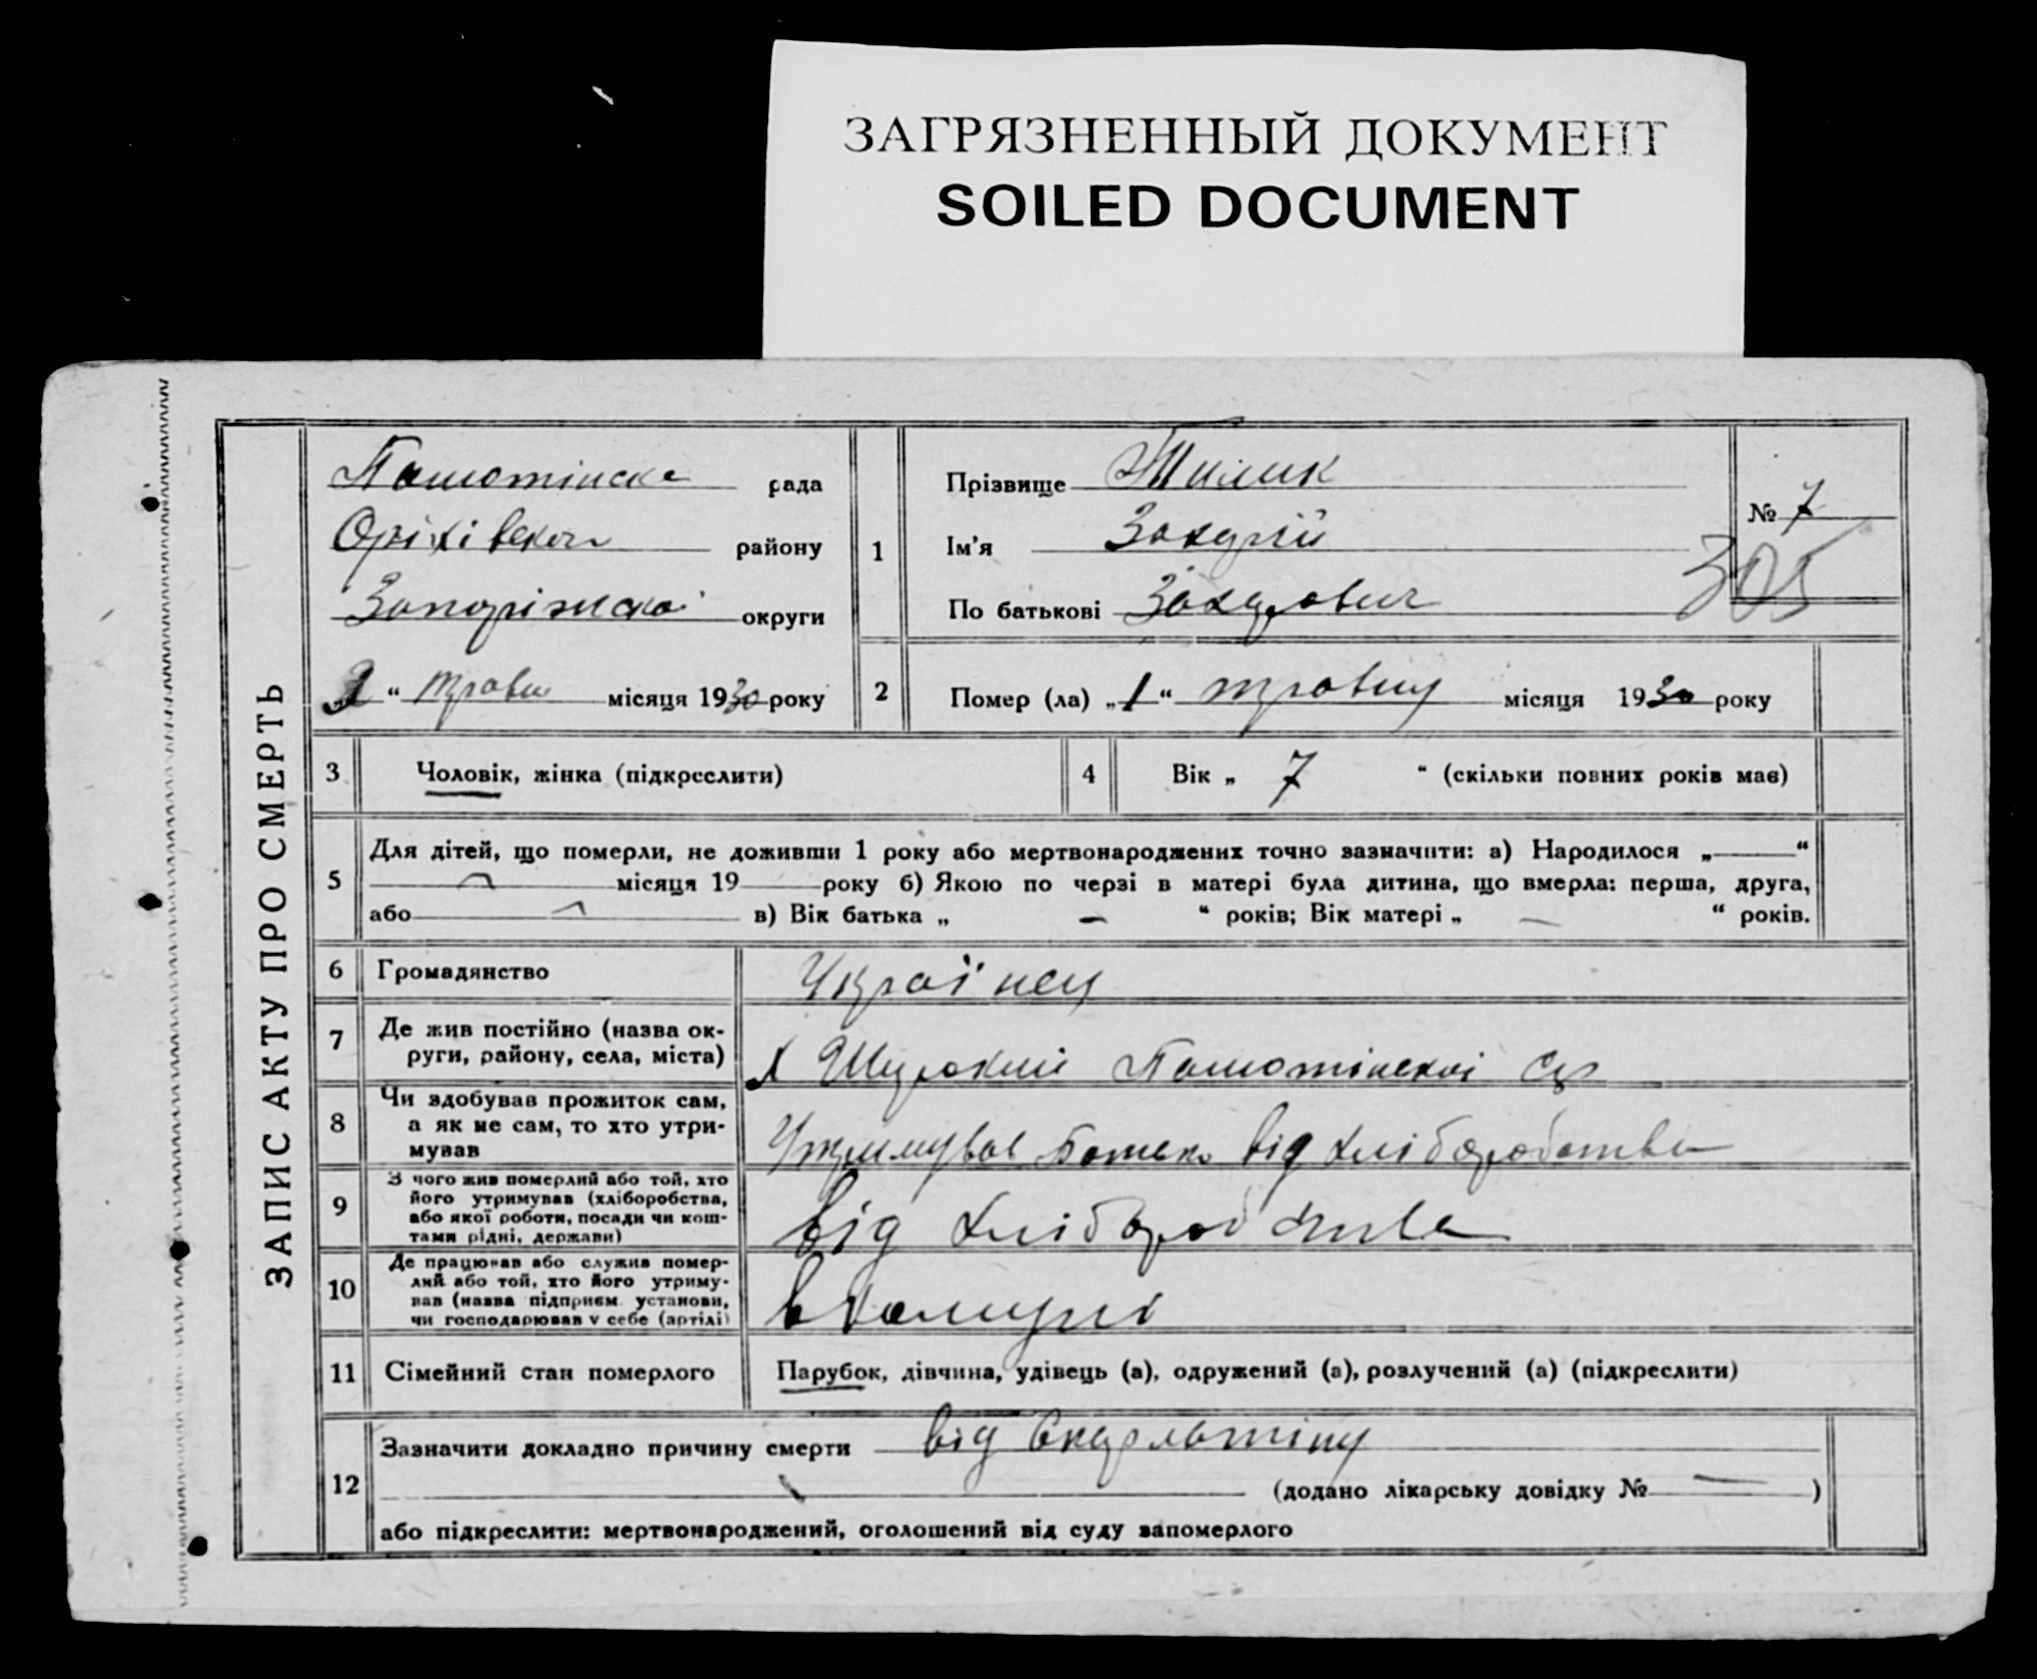 ЗАГРЯЗНЕННЫЙ ДОКУМЕНТ
SOILED DOCUMENT
ЗАПИС АКТУ ПРО СМЕРТЬ
рада
Оріхівської району
Запоріжської округи
2 “ травн місяця 1930 року
1
Прізвище
Ім’я Захарій
По батькові Захарович
№ 7
305
2
Помер (ла) „1“ травня місяця 1930 року
3
Чоловік, жінка (підкреслити)
4
Вік „ 7 “ (скільки повних років має)
5
Для дітей, що померли, не доживши 1 року або мертвонароджених точно зазначити: а) Народилося „—“
місяця 19 року б) Якою по черзі в матері була дитина, що вмерла: перша, друга,
або в) Вік батька „ – “ років; Вік матері „ – “ років.
6
Громадянство
Українец
7
Де жив постійно (назва ок-
руги, району, села, міста)
х
8
Чи здобував прожиток сам,
а як не сам, то хто утри-
мував
Утримував Батько від хліборобства
9
З чого жив померлий або той, хто
його утримував (хліборобства,
або якої роботи, посади чи кош-
тами рідні, держави)
від хліборобства
10
Де працював або служив помер-
лий або той, хто його утриму-
вав (назва підприєм. установи,
чи господарював у себе (артілі)
в
11
Сімейний стан померлого
Парубок, дівчина, удівець (а), одружений (а), розлучений (а) (підкреслити)
12
Зазначити докладно причину смерти від
(додано лікарську довідку № — )
або підкреслити: мертвонароджений, оголошений від суду запомерлого